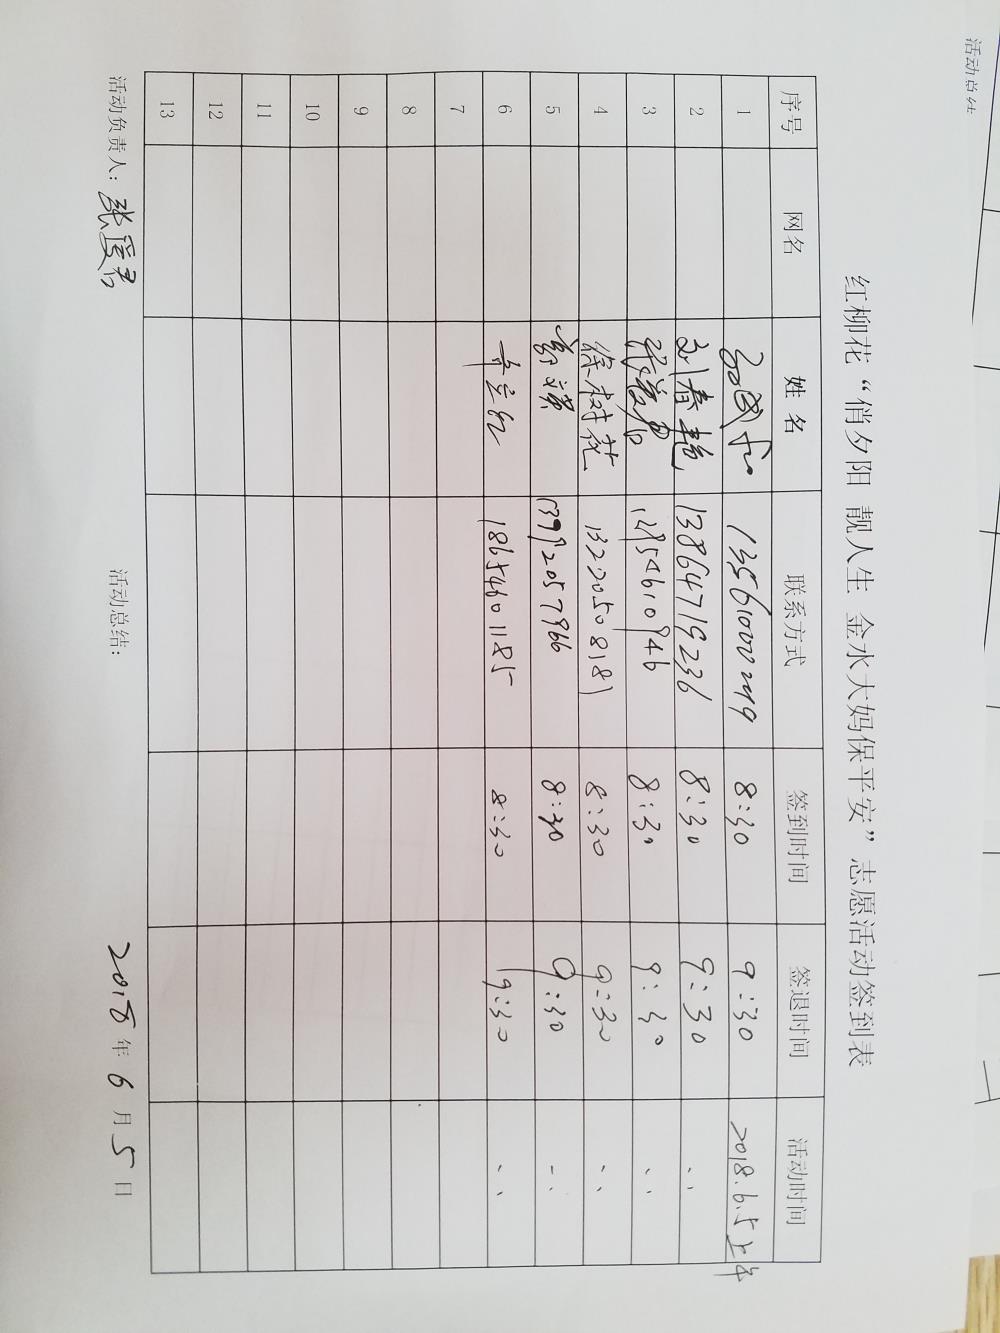 活动总结
红柳花“俏夕阳 靓人生 金水大妈保平安”志愿活动签到表
序号 网名 姓名 联系方式 签到时间 签退时间 活动时间
1 13561000249 8:30 9:30 2018.6.5上午
2 刘春艳 13864719236 8:30 9:30 〃
3 8:30 9:30 〃
4 徐树花 13220508181 8:30 9:30 〃
5 8:30 9:30 〃
6 18654601185 8:30 9:30 〃
7
8
9
10
11
12
13
活动负责人： 活动总结： 2018年6月5日